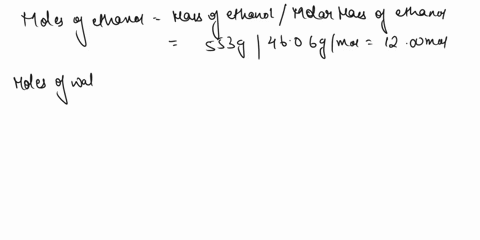 Moles of ethanol = Mass of ethanol / Molar Mass of ethanol
= 553g | 46.06g/mol = 12.00mol
Moles of wat